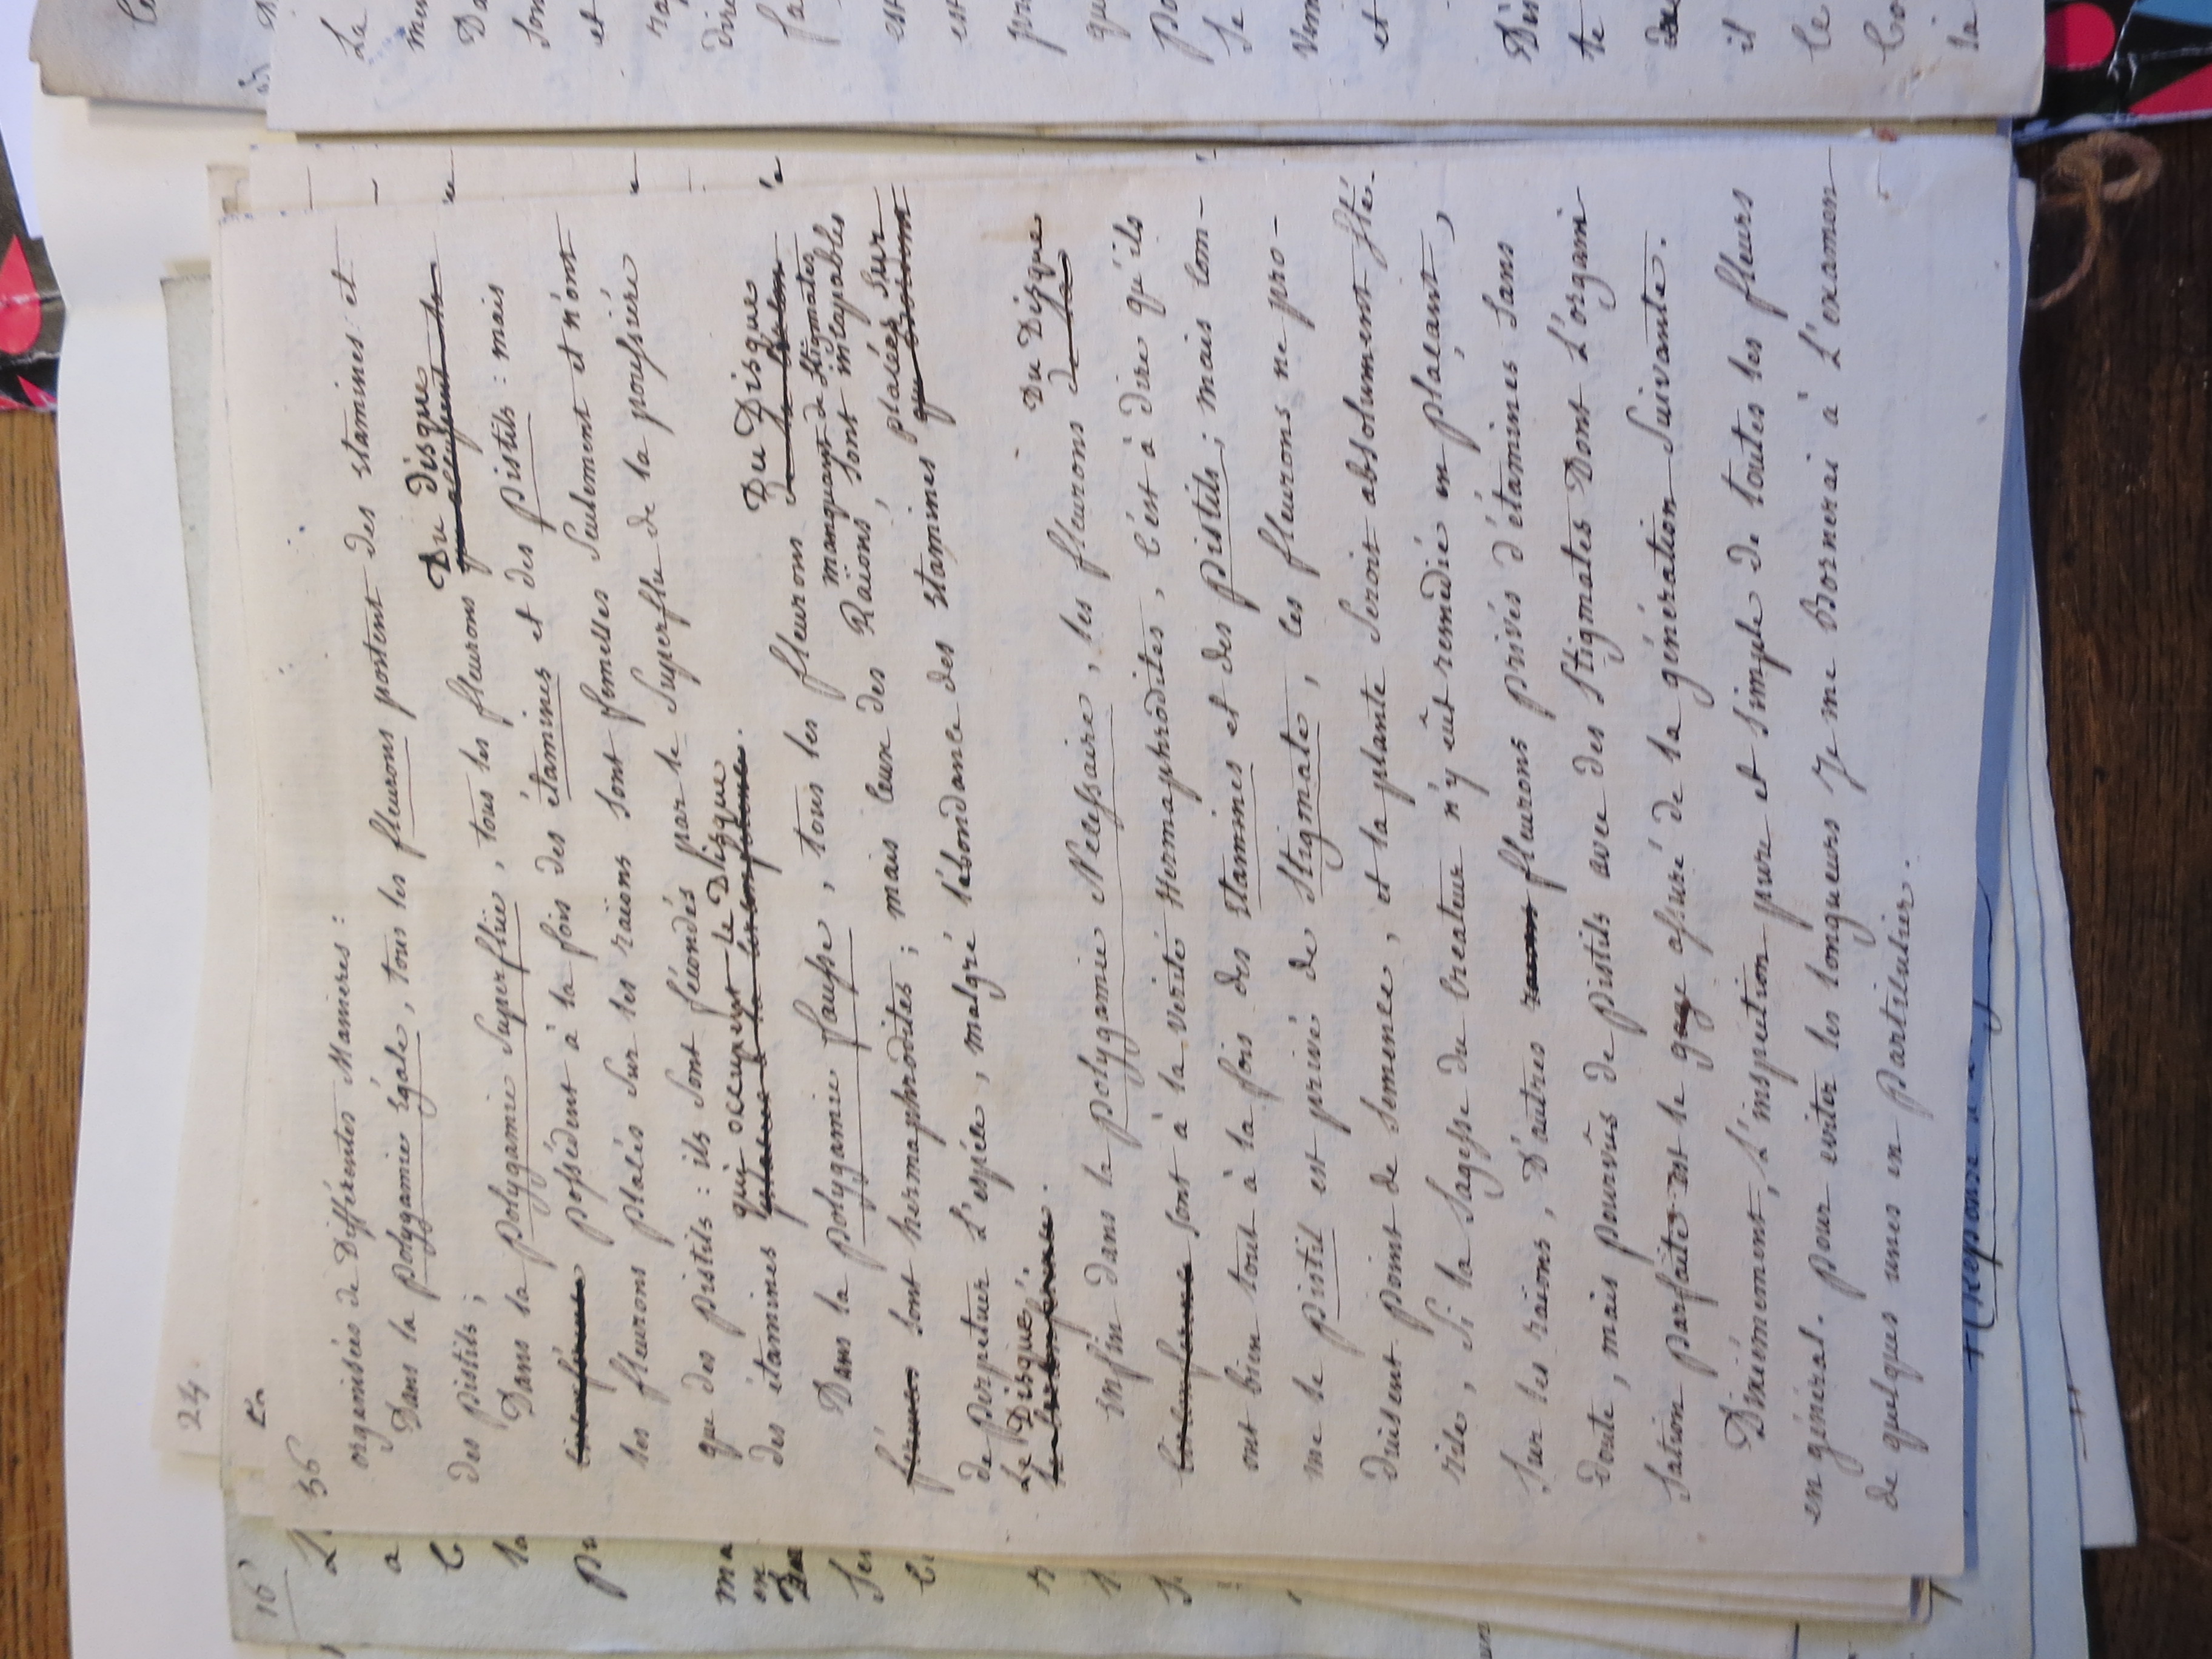 24.
36
organisées de Différentes Manieres :
Dans la polygamie égale, tous les fleurons portent des stamines et
des pistils ;
Du disque
Dans la polygamie Superflüe, tous les fleurons
possédent à la fois des étamines et des pistils : mais
les fleurons placés sur les raïons sont femelles seulement et n'ont
que des pistils : ils sont fécondés par le superflu de la poussière
qui occupent le Disque
des étamines
Du Disque
Dans la polygamie fausse, tous les fleurons
manquant de stigmates
sont hermaphrodites ; mais ceux des Raïons, sont incapables
placées sur
de perpetuer l'espéce, malgré l'abondance des stamines
Le Disque.
Du Disque
enfin dans la polygamie Necessaire, les fleurons
sont à la verité Hermaphrodites, c'est à dire qu'ils
ont bien tout à la fois des stamines et des pistils ; mais com-
me le pistil est privé de stigmate, les fleurons ne pro-
duisent point de semence, et la plante seroit absolument sté-
rile, si la sagesse du createur n'y eût remedié en plaçant,
sur les raions, d'autres fleurons privés d'étamines sans
doute, mais pourvûs de pistils avec des stigmates Dont l'organi
sation parfaite est le gage assuré de la génération suivante.
Dneiemement, l'inspection pure et simple de toutes les fleurs
en général. pour eviter les longueurs Je me Bornerai à l'examen
de quelques unes en particulier.
16